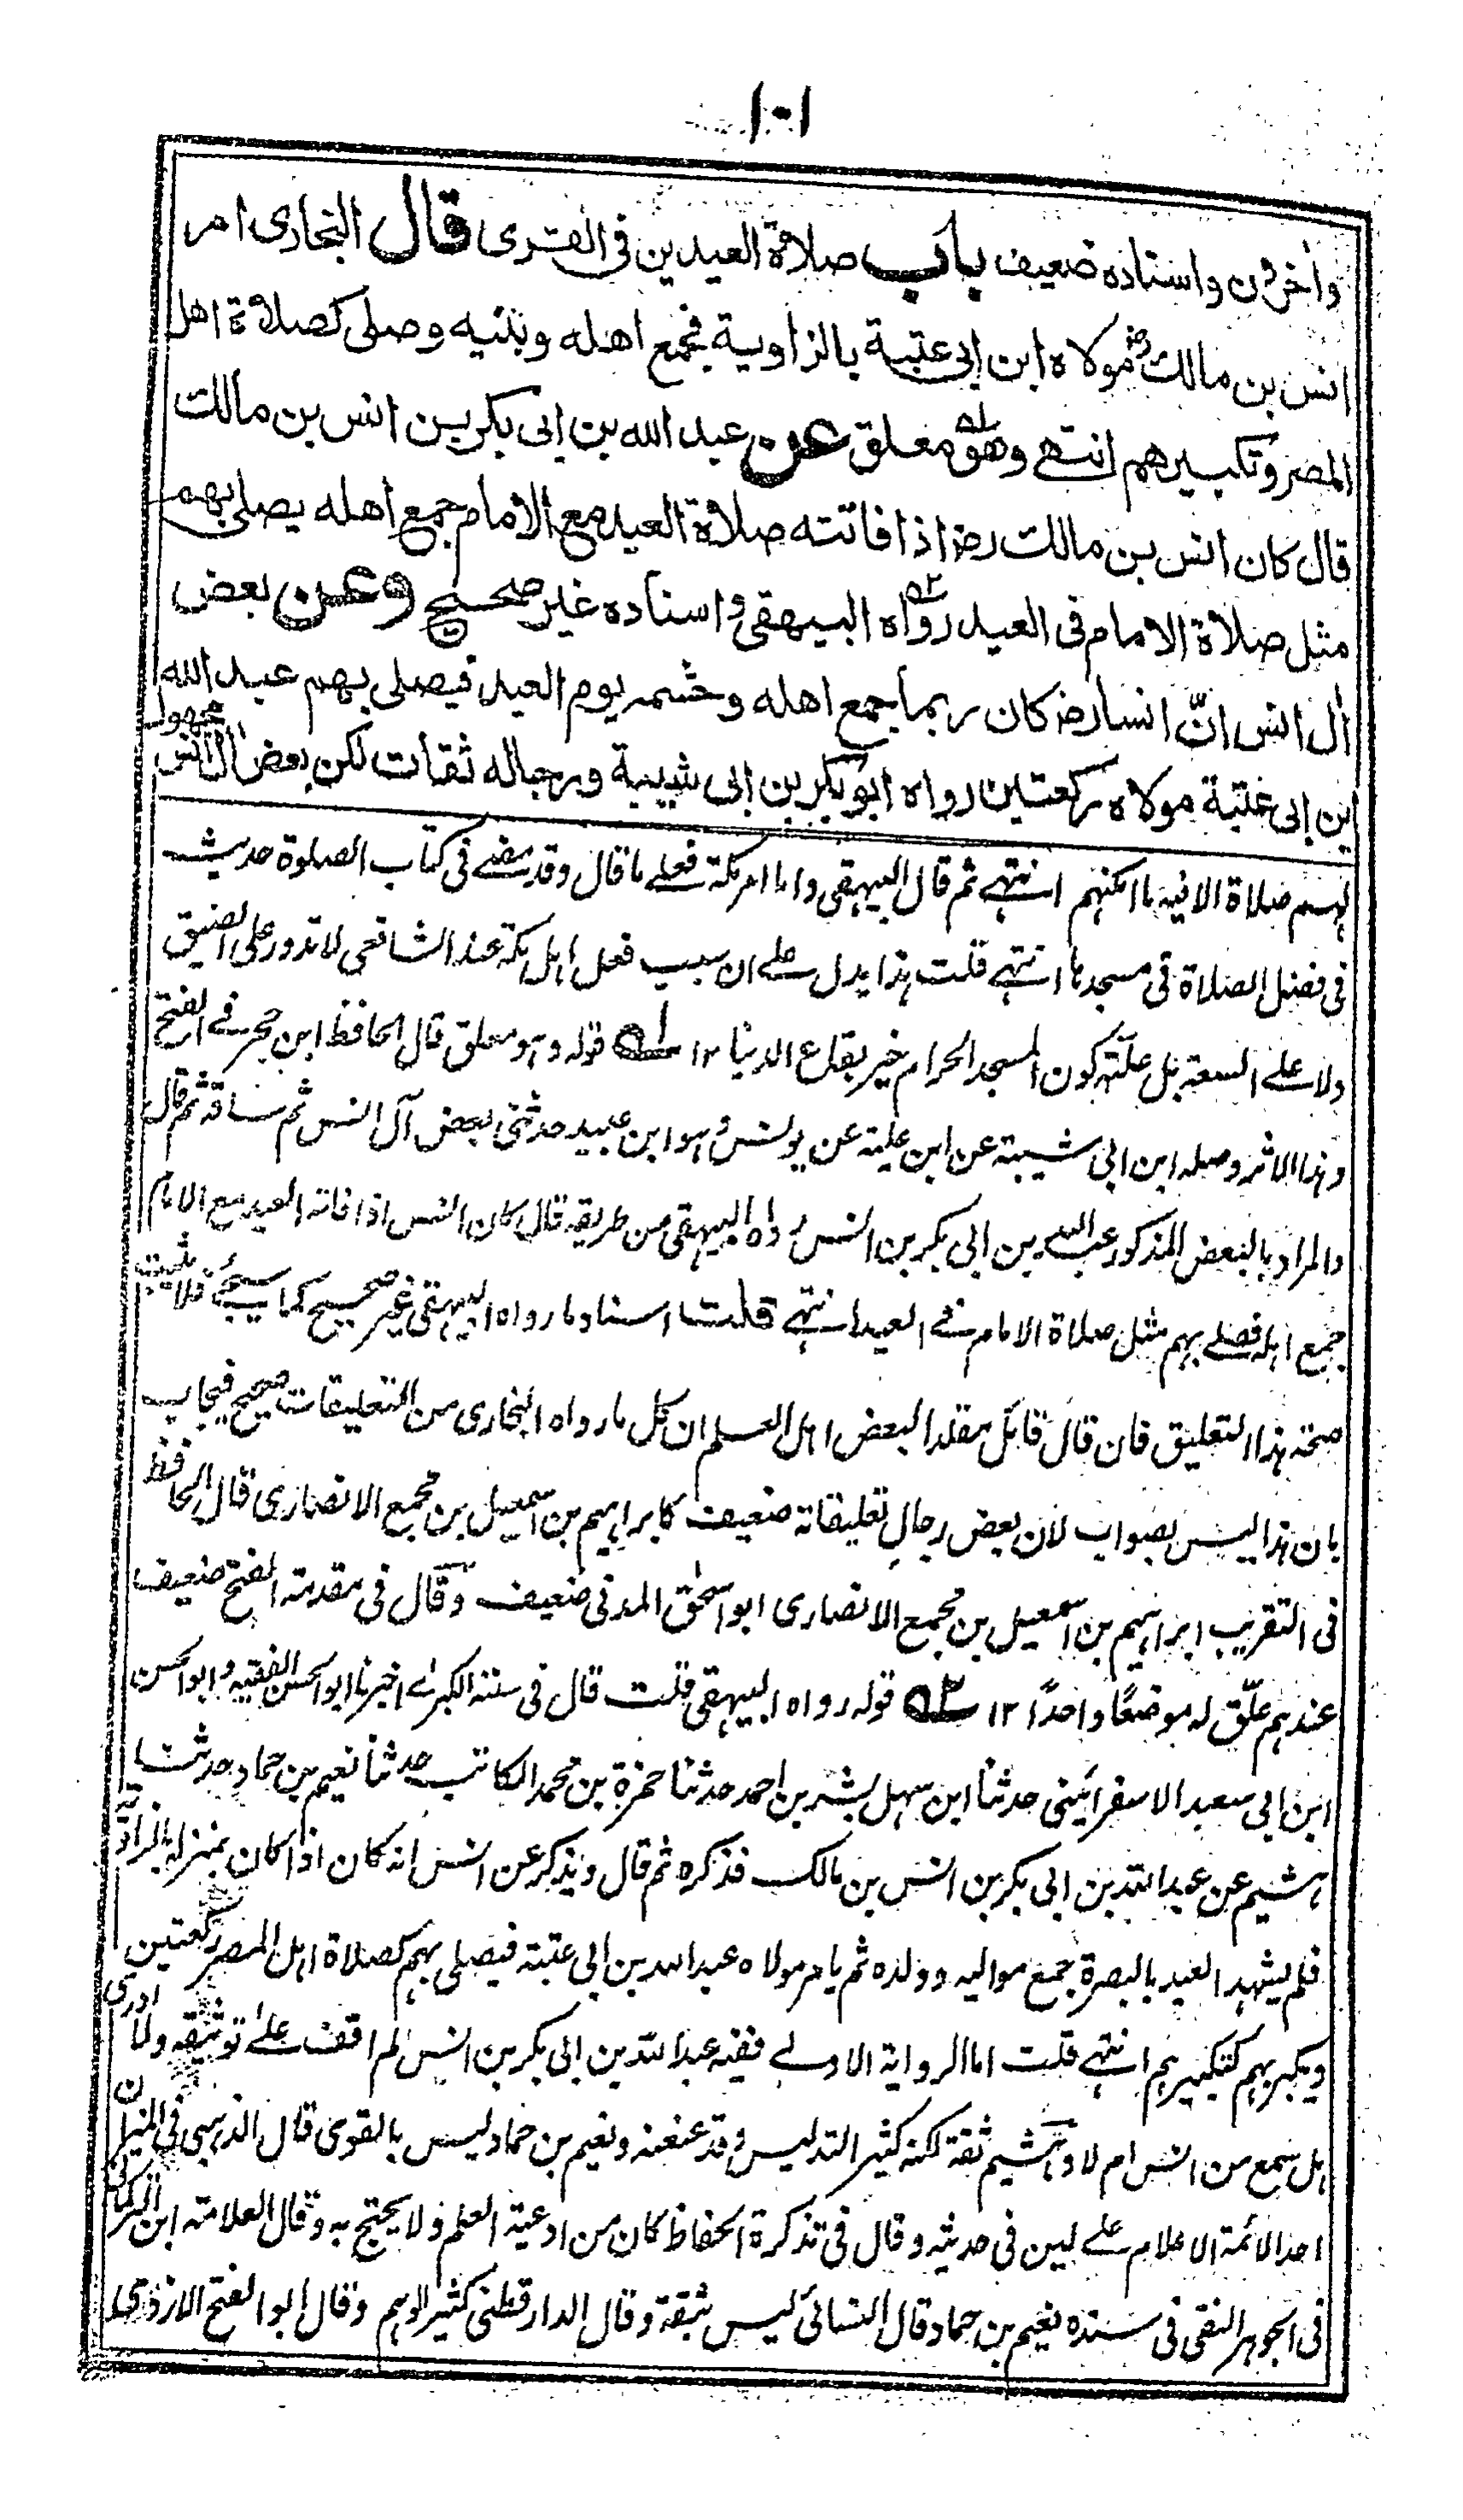 ١٠١
واخرون واسناده ضعيف باب صلاة العيدين فى القرى قال البخارى امر
انس بن مالك رض مولاه ابن ابى عتبة بالزاوية فجمع اهله وبنيه وصلى كصلاة اهل
المصر وتكبيرهم انتهى وهو ١ه معلق عن عبد الله بن ابى بكر بن انس بن مالك
قال كان انس بن مالك رض اذا فاتته صلاة العيد مع الامام جمع اهله يصلى بهم
مثل صلاة الامام فى العيد رواه ٢ه البيهقى واسناده غير صحيح وعن بعض
آل انس انّ انسا رض كان ربما جمع اهله وحشمه يوم العيد فيصلى بهم عبد الله
ابن ابى عتبة مولاه ركعتين رواه ابو بكر بن ابى شيبة ورجاله ثقات لكن بعض آل انس مجهول
لهم صلاة الا فيه ما امكنهم انتهى ثم قال البيهقى واما امر مكة فعلى ما قال وقد مضى فى كتاب الصلوة حديث
فى فضل الصلاة فى مسجدها انتهى قلت هذا يدل على ان سبب فعل اهل مكة عند الشافعى لا تدور على الضيق
ولا على السعة بل علّته كون المسجد الحرام خير بقاع الدنيا ١٢ ١ه قوله وهو معلق قال الحافظ ابن حجر فى الفتح
وهذا الاثر وصله ابن ابى شيبة عن ابن علية عن يونس وهو ابن عبيد حدثنى بعض آل انس ثم ساقه ثم قال
والمراد بالبعض المذكور عبد الله بن ابى بكر بن انس رواه البيهقى من طريقه قال كان انس اذا فاته العيد مع الامام
جمع اهله فصلى بهم مثل صلاة الامام فى العيد انتهى قلت اسناد ما رواه البيهقى غير صحيح كما سيجئ فلا يثبت
صحة هذا التعليق فان قال قائل مقلدا لبعض اهل العلم ان كل ما رواه البخارى من التعليقات صحيح فيجاب
بان هذا ليس بصواب لان بعض رجال تعليقاته ضعيف كابراهيم بن اسمعيل بن مجمع الانصارى قال الحافظ
فى التقريب ابراهيم بن اسمعيل بن مجمع الانصارى ابو اسحٰق المدنى ضعيف وقال فى مقدمة الفتح ضعيف
عندهم علّق له موضعًا واحدًا ١٢ ٢ه قوله رواه البيهقى قلت قال فى سننه الكبرٰى اخبرنا ابو الحسن الفقيه وابو الحسن
ابن ابى سعيد الاسفرائينى حدثنا ابن سهل بشر بن احمد حدثنا حمزة بن محمد الكاتب حدثنا نعيم بن حماد حدثنا
هشيم عن عبد الله بن ابى بكر بن انس بن مالك فذكره ثم قال ويذكر عن انس انه كان اذا كان بمنزله بالزاوية
فلم يشهد العيد بالبصرة جمع مواليه وولده ثم يامر مولاه عبد الله بن ابى عتبة فيصلى بهم كصلاة اهل المصر ركعتين
ويكبر بهم كتكبيرهم انتهى قلت اما الرواية الاولى ففيه عبد الله بن ابى بكر بن انس لم اقف على توثيقه ولا ادرى
هل سمع من انس ام لا وهشيم ثقة لكنه كثير التدليس وقد عنعنه ونعيم بن حماد ليس بالقوى قال الذهبى فى الميزان
احد الائمة الاعلام على لين فى حديثه وقال فى تذكرة الحفاظ كان من اوعية العلم ولا يحتج به وقال العلامة ابن التركمانى
فى الجوهر النقى فى سنده نعيم بن حماد قال النسائى ليس بثقة وقال الدارقطنى كثير الوهم وقال ابو الفتح الازدى